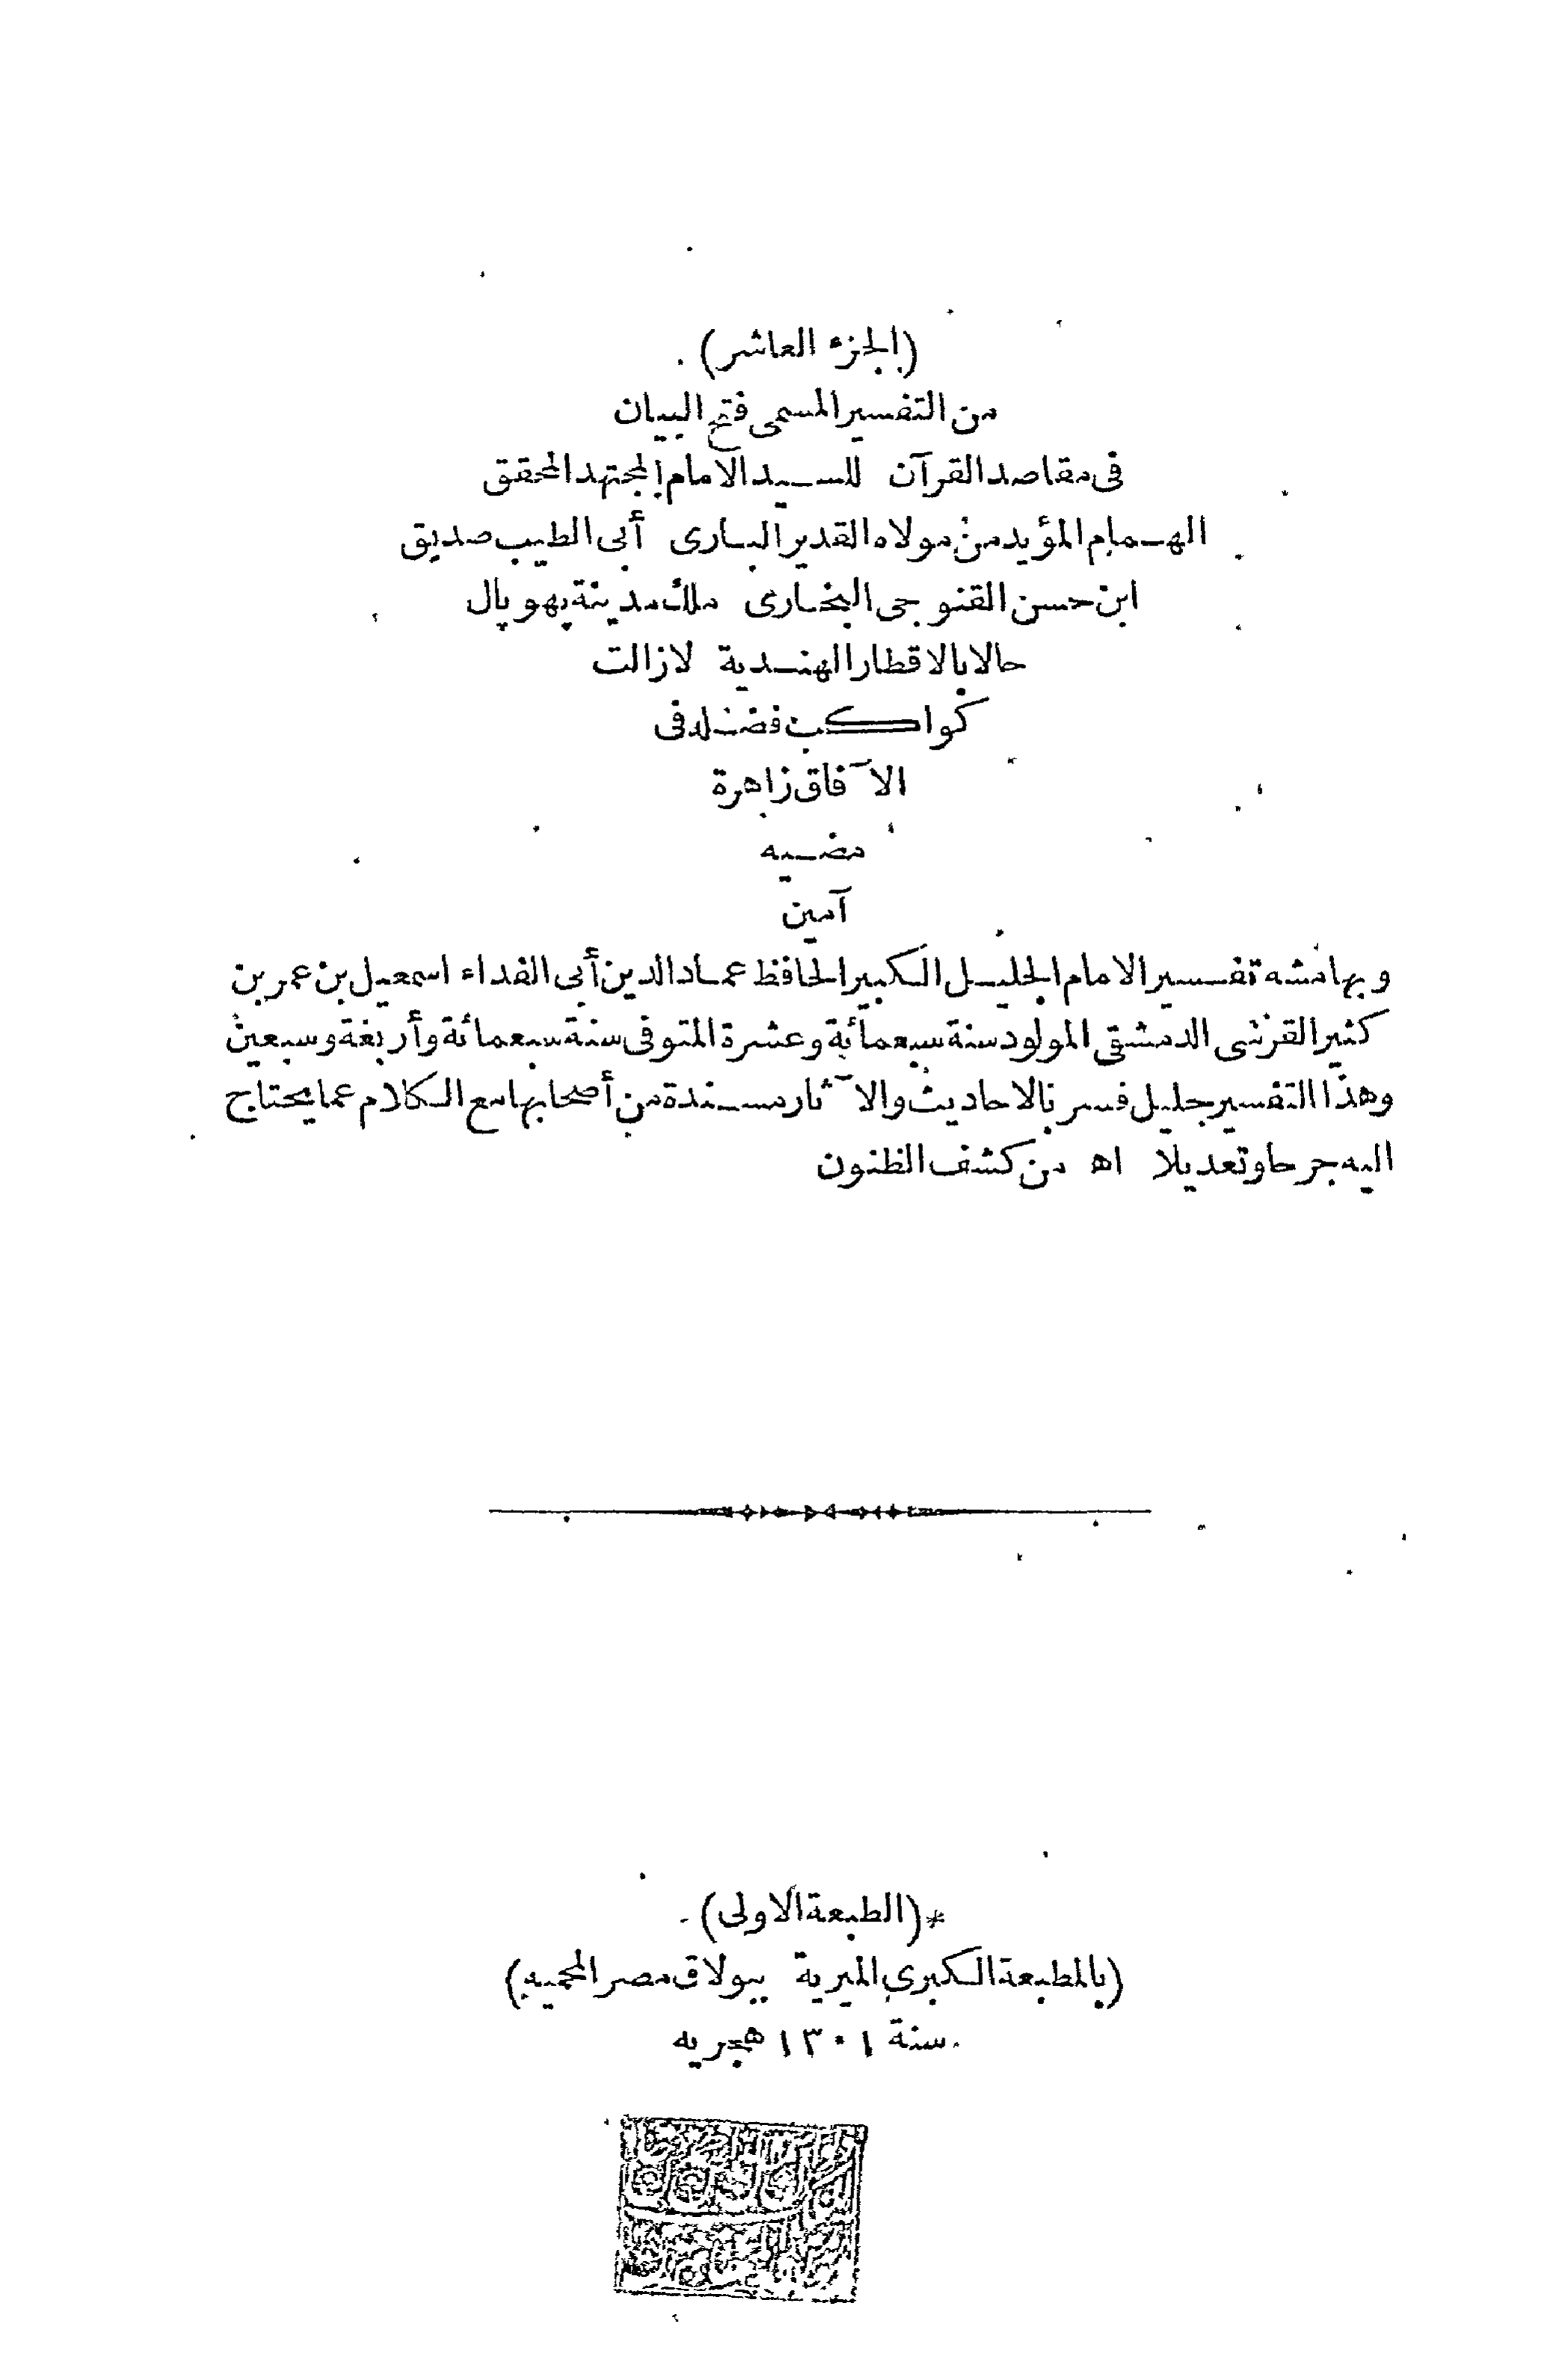 (الجزء العاشر)
من التفسير المسمى فتح البيان
فى مقاصد القرآن للسيد الامام المجتهد المحقق
الهمام المؤيد من مولاه القدير البارى أبى الطيب صديق
ابن حسن القنوجى البخارى ملك مدينة بهوپال
حالا بالاقطار الهندية لا زالت
كواكب فضله فى
الآفاق زاهرة
مضيه
آمين
وبهامشه تفسير الامام الجليل الكبير الحافظ عماد الدين أبى الفداء اسمعيل بن عمر بن
كثير القرشى الدمشقى المولود سنة سبعمائة وعشرة المتوفى سنة سبعمائة وأربعة وسبعين
وهذا التفسير جليل فسر بالاحاديث والآثار مسندة من أصحابها مع الكلام عما يحتاج
اليه جرحا وتعديلا اه من كشف الظنون
*(الطبعة الاولى)
(بالمطبعة الكبرى الميرية ببولاق مصر المحميه)
سنة ١٣٠١ هجريه